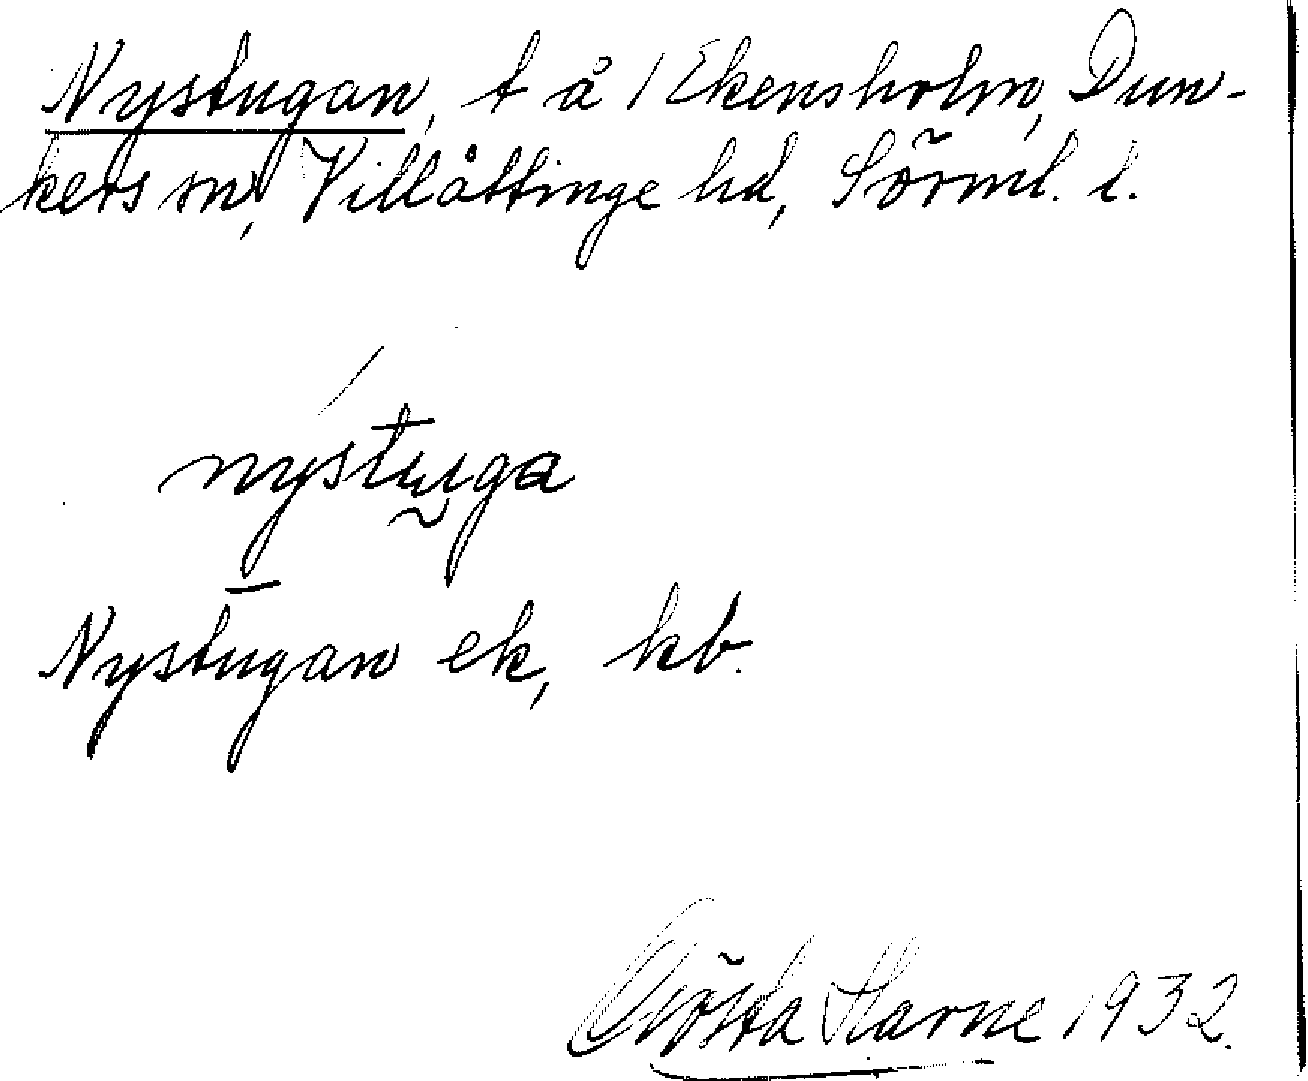 Nystugan, t å /Ekensholm, Dun-
kers sn, Villåttinge hd, Sörml. l.
nystuga
Nystugan ek, kb.
Gösta Harne 1932.